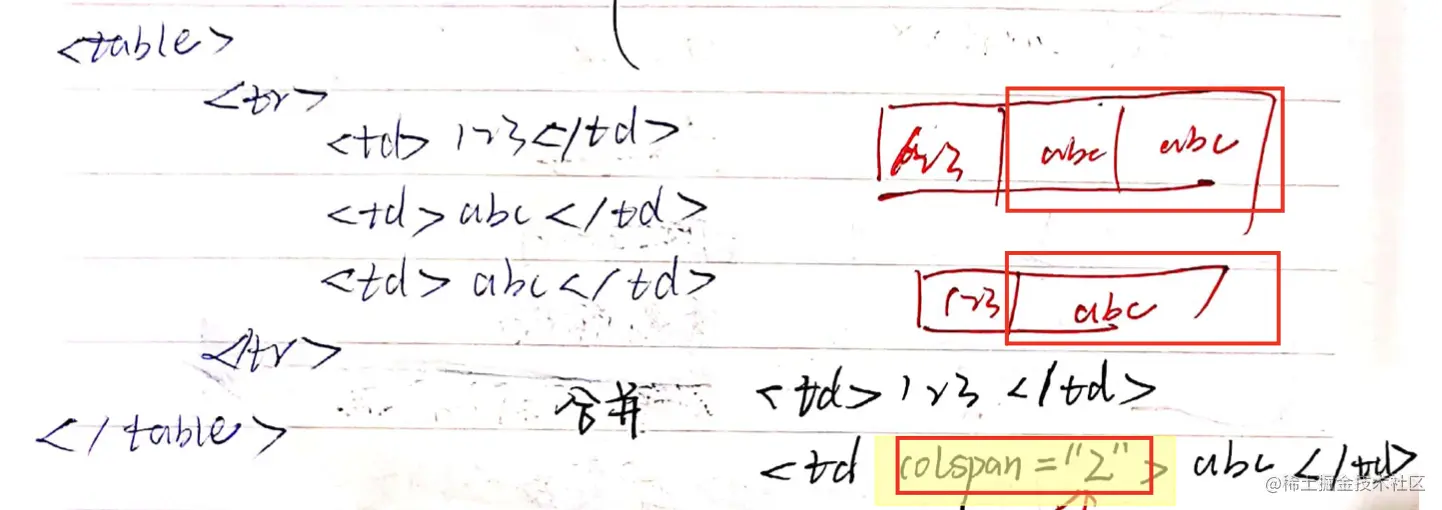 <table>
<tr>
<td>123</td>
<td>abc</td>
<td>abc</td>
</tr>
</table>
123 abc abc
123 abc
合并
<td>123</td>
<td colspan="2">abc</td>
@稀土掘金技术社区